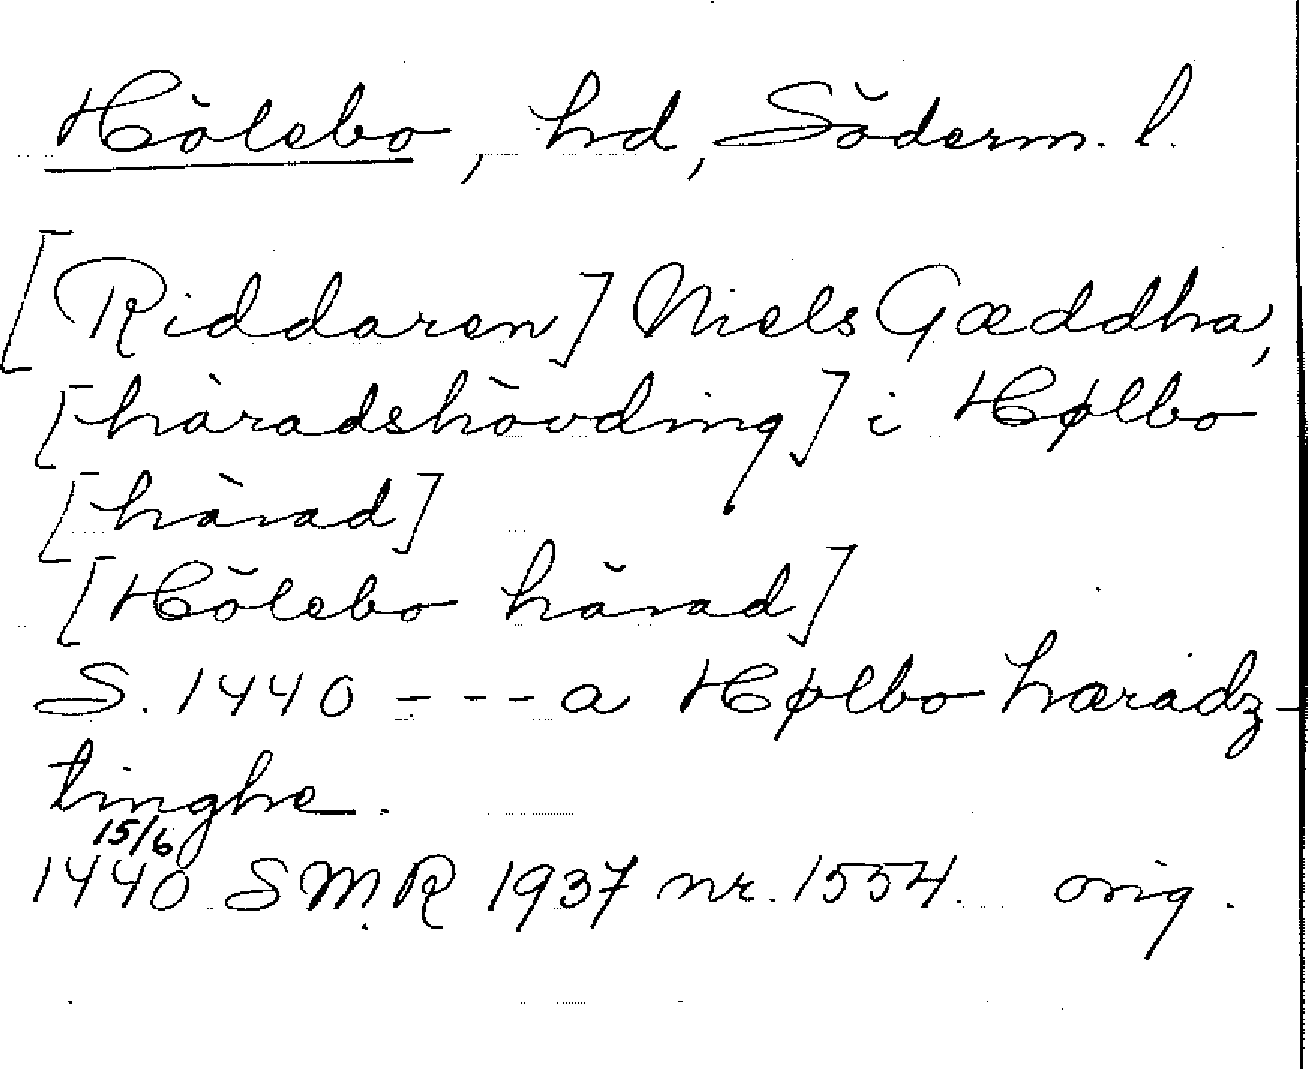 Hölebo, hd, Söderm. l.
[Riddaren] Niels Gæddha,
[häradshövding] i Hølbo
[härad]
[Hölebo härad]
S. 1440 - - - a Hølbo hæradz-
tinghe.
15/6
1440 SMR 1937 nr. 1554. orig.